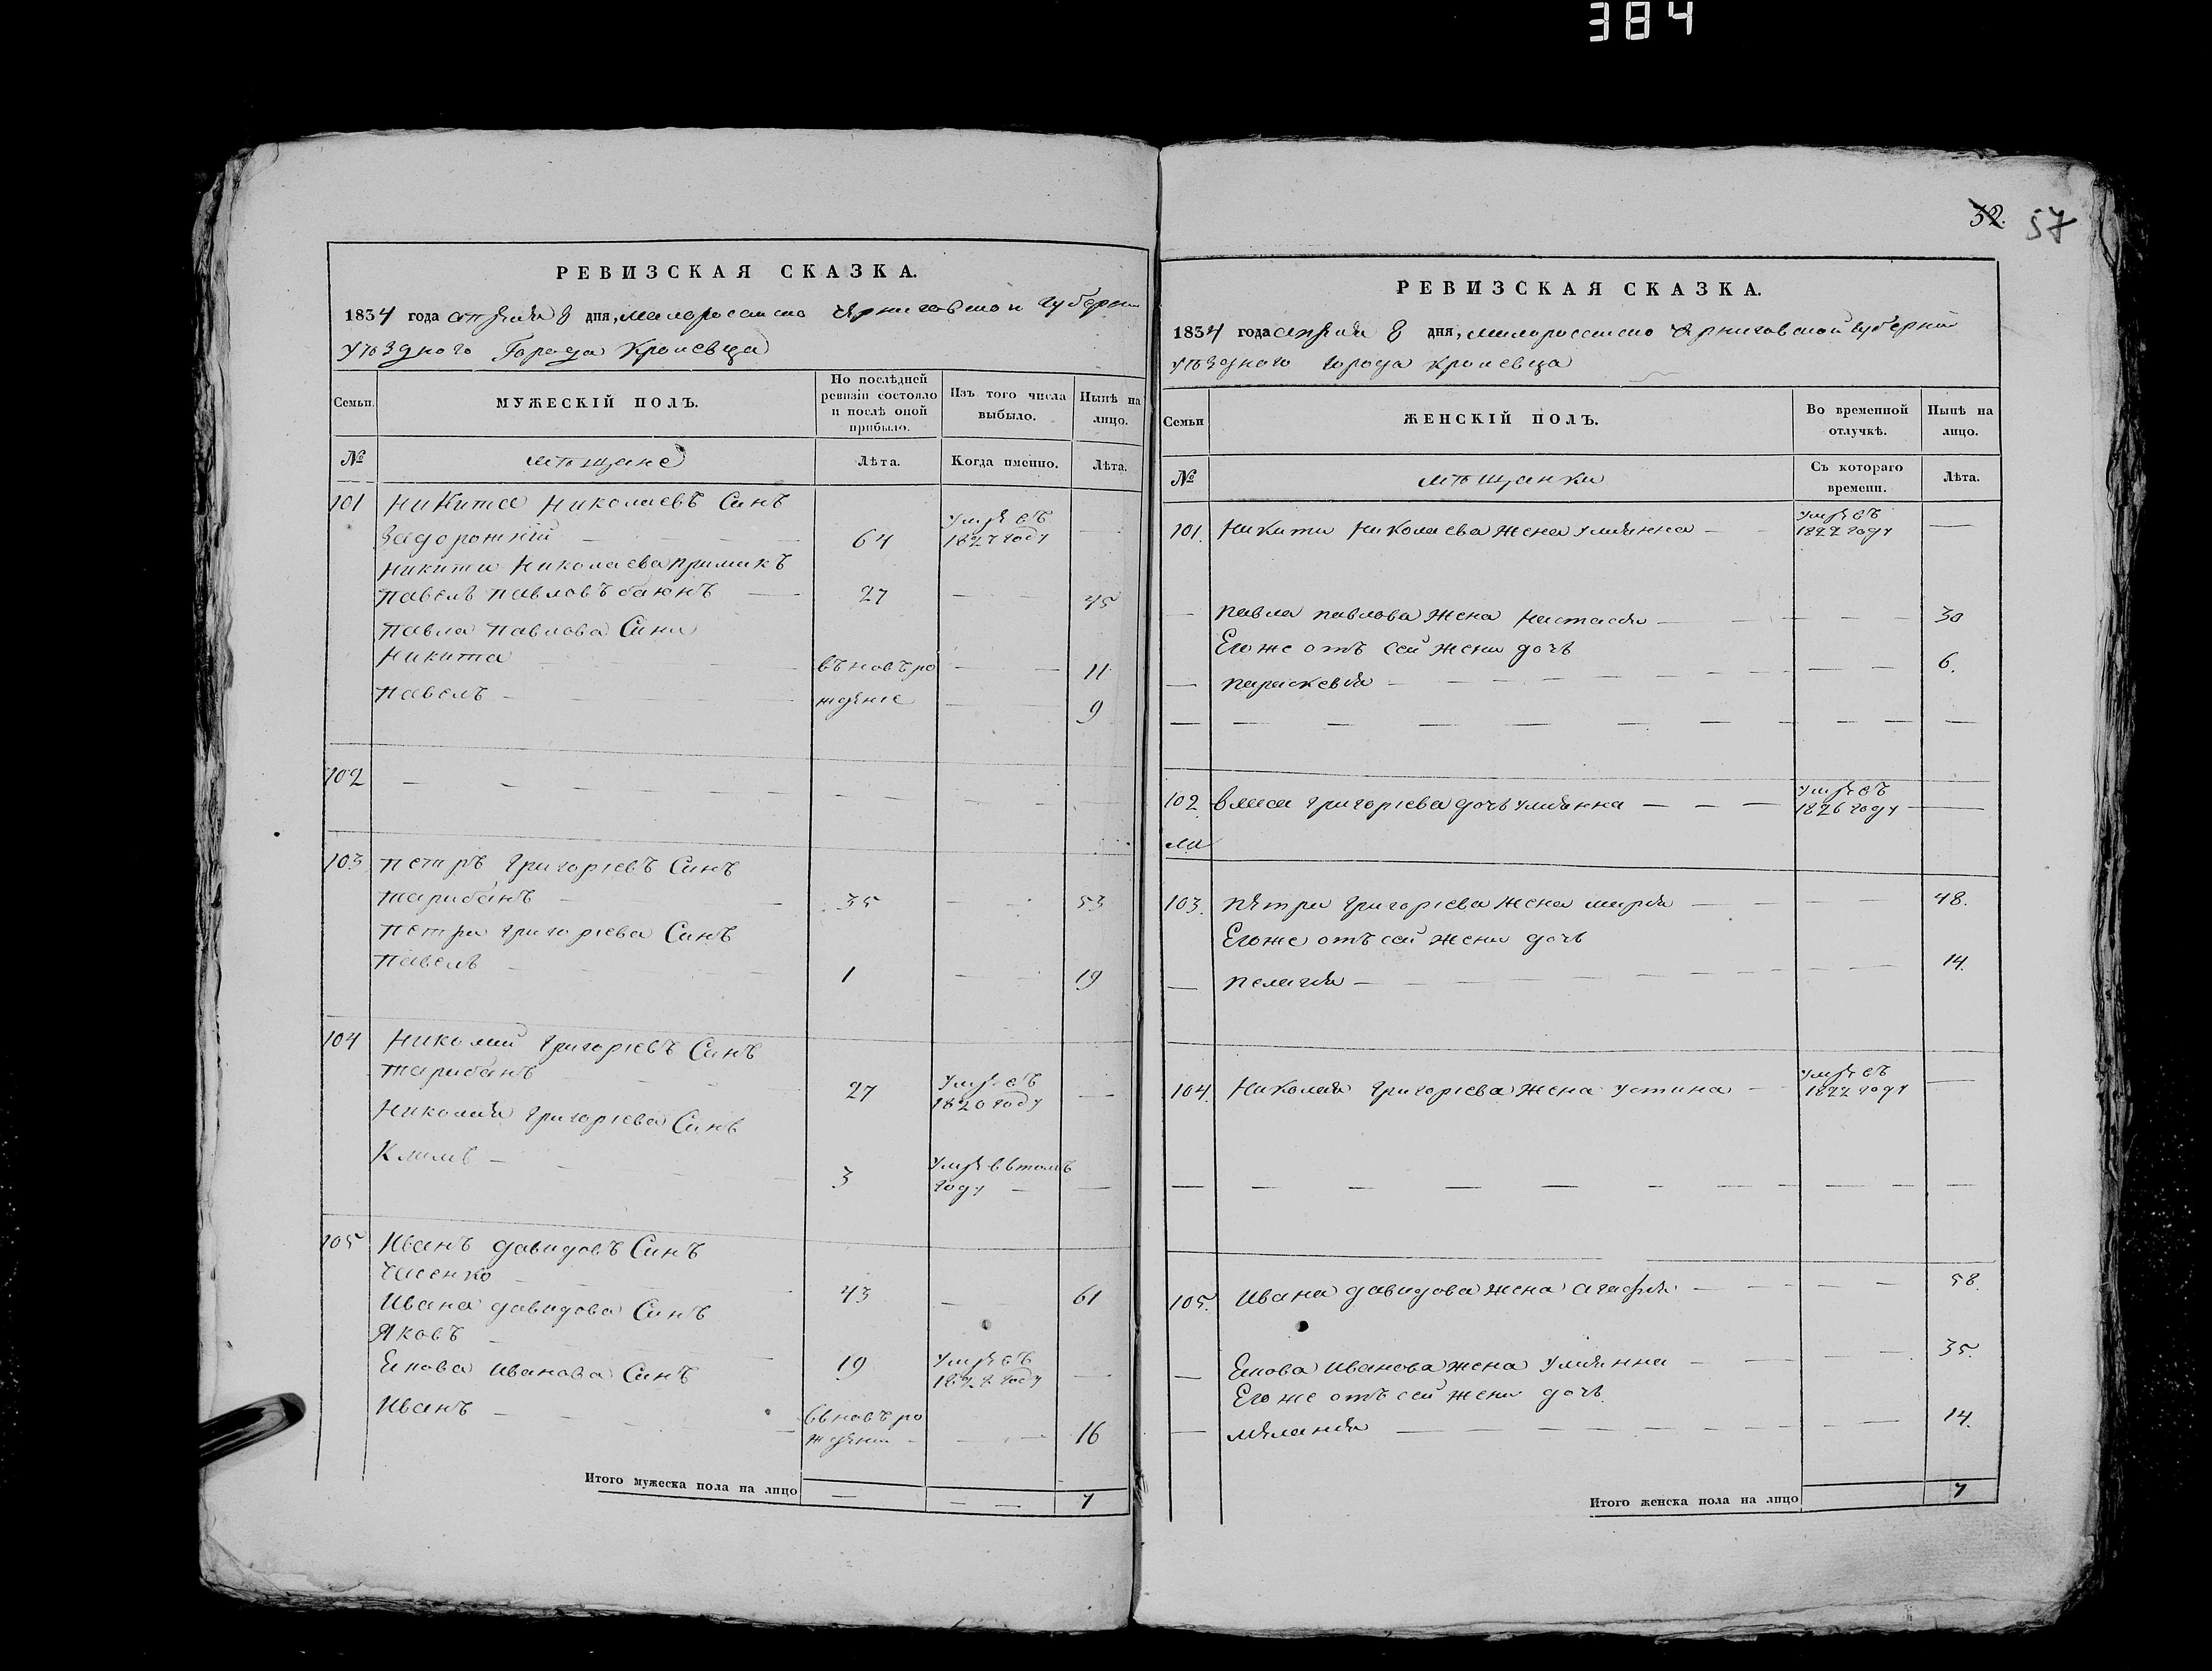 384
32. 57
РЕВИЗСКАЯ СКАЗКА.
1834 года апреля 8 дня, малороссиско Черниговской губерни
уѣздного Города Кролевца
Семьи.
МУЖЕСКІЙ ПОЛЪ.
По послѣдней ревизіи состояло и послѣ оной прибыло.
Изъ того числа выбыло.
Нынѣ на лицо.
№
мѣщане
Лѣта.
Когда именно.
Лѣта.
101 Никита Николаевъ Синъ
Задорожній — 64 умре въ 1827 году —
Никити Николаева примакъ
Павелъ Павловъ — 27 — — 45
Павла Павлова Сини
Никита — въ новъ ро — — 11
Павелъ — ждение — — 9
102 — — — — — —
103 Петръ Григоріевъ Синъ
тарабанъ — 35 — — 53
Петра Григоріева Синъ
Павелъ — 1 — — 19
104 Николай Григоріевъ Синъ
тарабанъ — 27 умре въ 1820 году —
Николая Григоріева Синъ
Климъ — 3 умре въ томъ году — —
105 Иванъ Давидовъ Синъ
43 — 61
Ивана Давидова Синъ
Яковъ — 19 умре въ 1828 году —
Якова Иванова Синъ
Иванъ — въ новъ рождении — — 16
Итого мужеска пола на лицо — — — 7
РЕВИЗСКАЯ СКАЗКА.
1834 года апреля 8 дня, малороссиско Черниговской губерни
уѣздного города Кролевца
Семьи
ЖЕНСКІЙ ПОЛЪ.
Во временной отлучкѣ.
Нынѣ на лицо.
№
мѣщанки
Съ котораго времени.
Лѣта.
101. Никити Николаева жена Улиянна — умре въ 1822 году —
— Павла Павлова жена Настасия — — — 30
Егоже отъ сей жени дочь
— Параскевия — — — 6.
— — — — — — — —
102. Григоріева дочь Улиянна — — — умре въ 1826 году —
103. Петра Григоріева жена Мария — — — 48.
Егоже отъ сей жени дочь
— Пелагия — — — 14.
104. Николая Григоріева жена Устина — умре въ 1822 году —
— — — — — — — —
105. Ивана Давидова жена Агафия — — — 58.
— Якова Иванова жена Улиянна — — — 35.
Егоже отъ сей жени дочь.
— Мелания — — — 14.
Итого женска пола на лицо 7